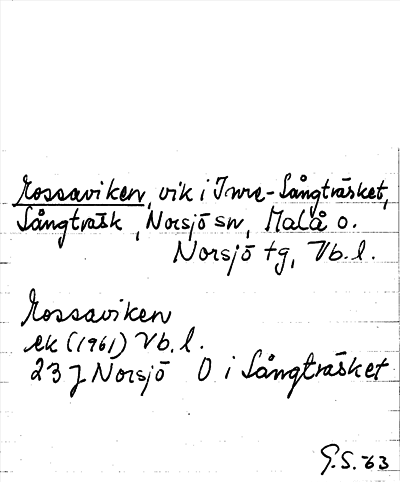 Rossaviken, vik i Inre-Långträsket,
Långträsk, Norsjö sn, Malå o.
Norsjö tg, Vb. l.
Rossaviken
ek (1961) Vb. l.
23 J Norsjö O i Långträsket
G.S. -63